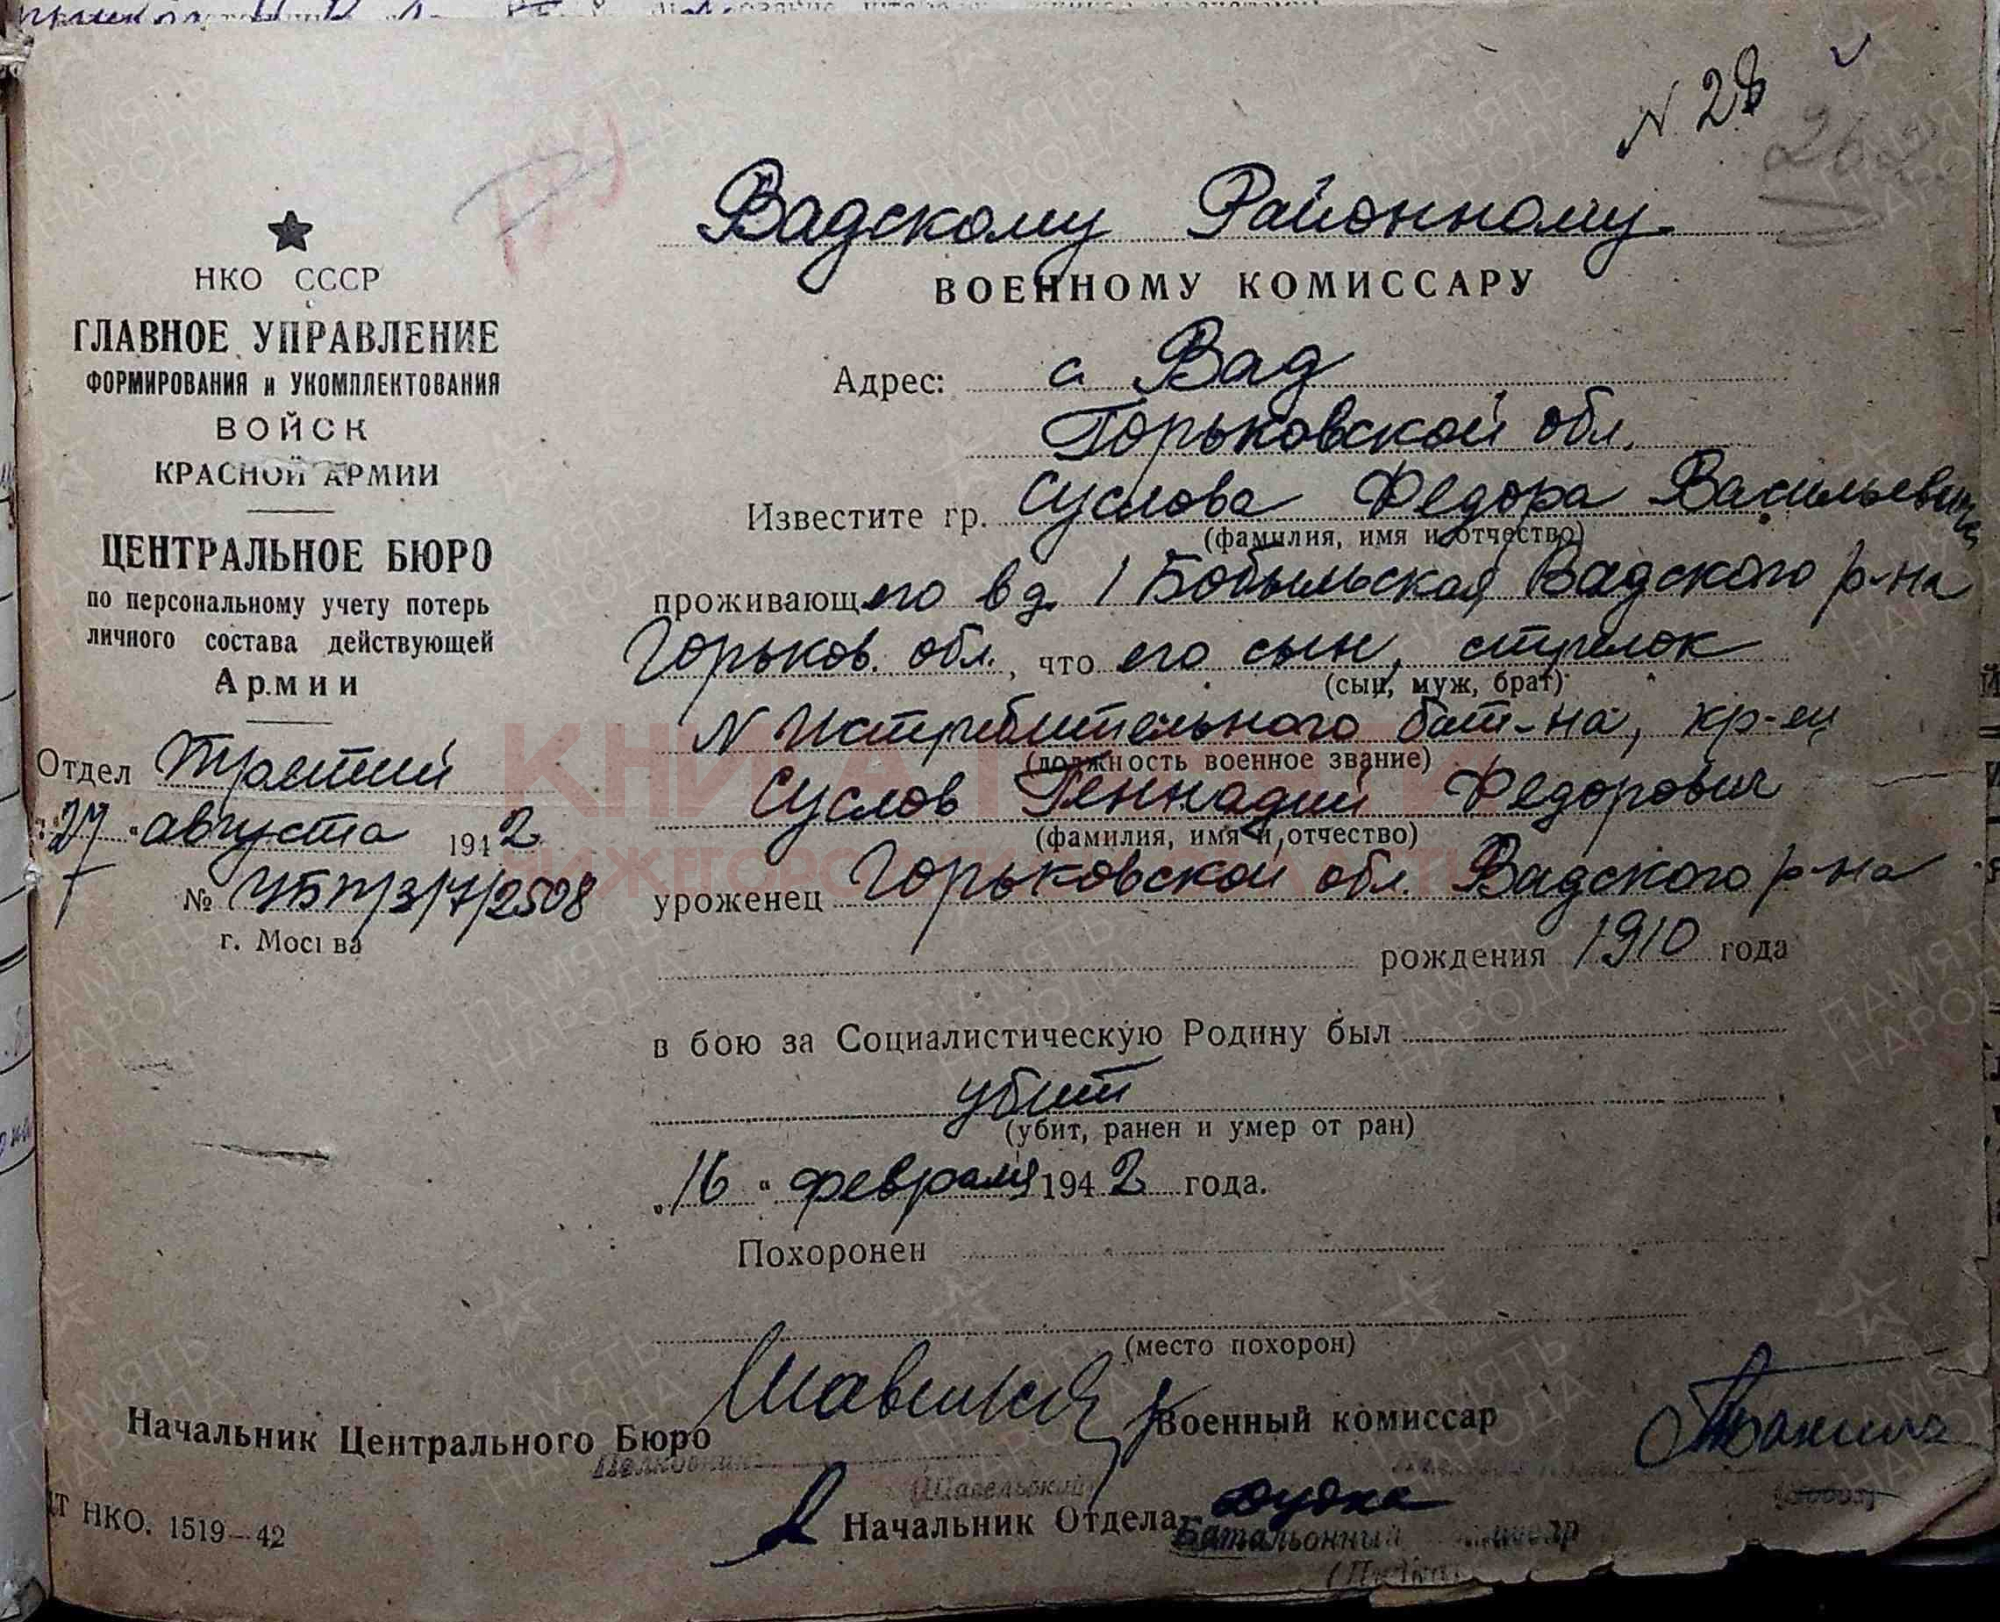 N 28
262
Вадскому Районному
ВОЕННОМУ КОМИССАРУ
Адрес: с Вад
Горьковской обл.
Известите гр. Суслова Федора Васильевича
(фамилия, имя и отчество)
проживающего в д. 1 Бобыльская Вадского р-на
Горьков. обл., что его сын, стрелок
(сын, муж, брат)
N Истребительного бат-на, кр-ец
(должность военное звание)
Суслов Геннадий Федорович
(фамилия, имя и отчество)
уроженец Горьковской обл. Вадского р-на
рождения 1910 года
в бою за Социалистическую Родину был
убит
(убит, ранен и умер от ран)
"16" февраля 1942 года.
Похоронен
(место похорон)
НКО СССР
ГЛАВНОЕ УПРАВЛЕНИЕ
ФОРМИРОВАНИЯ и УКОМПЛЕКТОВАНИЯ
ВОЙСК
КРАСНОЙ АРМИИ
ЦЕНТРАЛЬНОЕ БЮРО
по персональному учету потерь
личного состава действующей
Армии
Отдел Третий
"27" августа 1942
№ ЦБП/3/7/2508
г. Москва
Начальник Центрального Бюро
Полковник
(Шавельский)
Военный комиссар
Начальник Отдела
Дудка
Батальонный
НКО. 1519—42
КНИГА
ПАМЯТЬ НАРОДА